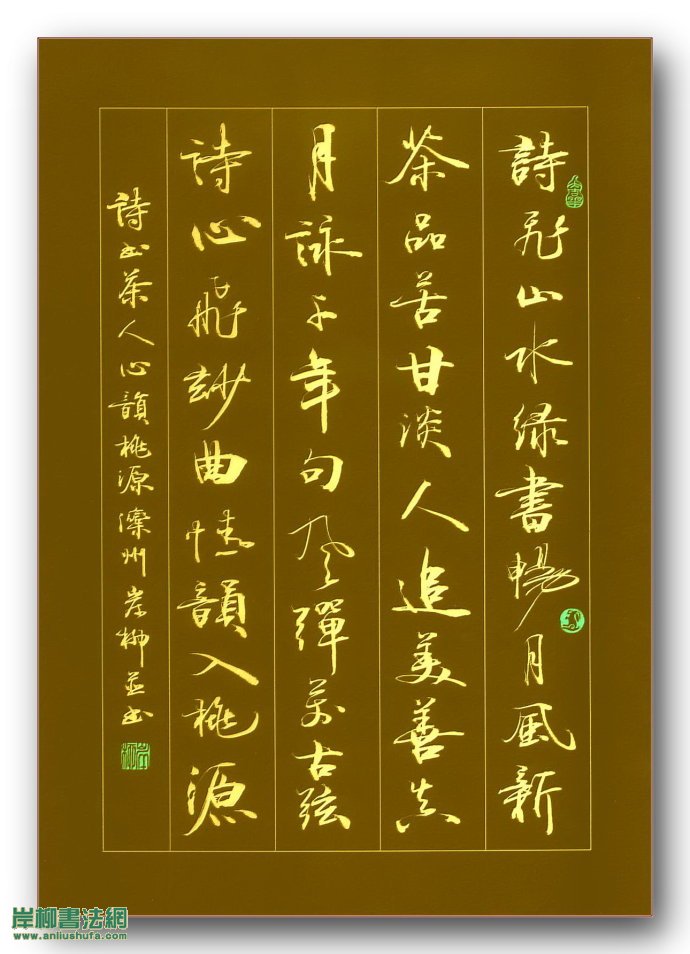 詩山水绿書暢月風新
茶品苦甘淡人追美善真
月詠千年句風彈萬古弦
诗心飛妙曲情韻入桃源
詩书茶人心韻桃源滦州岸柳並书
岸柳書法網
www.anliushufa.com